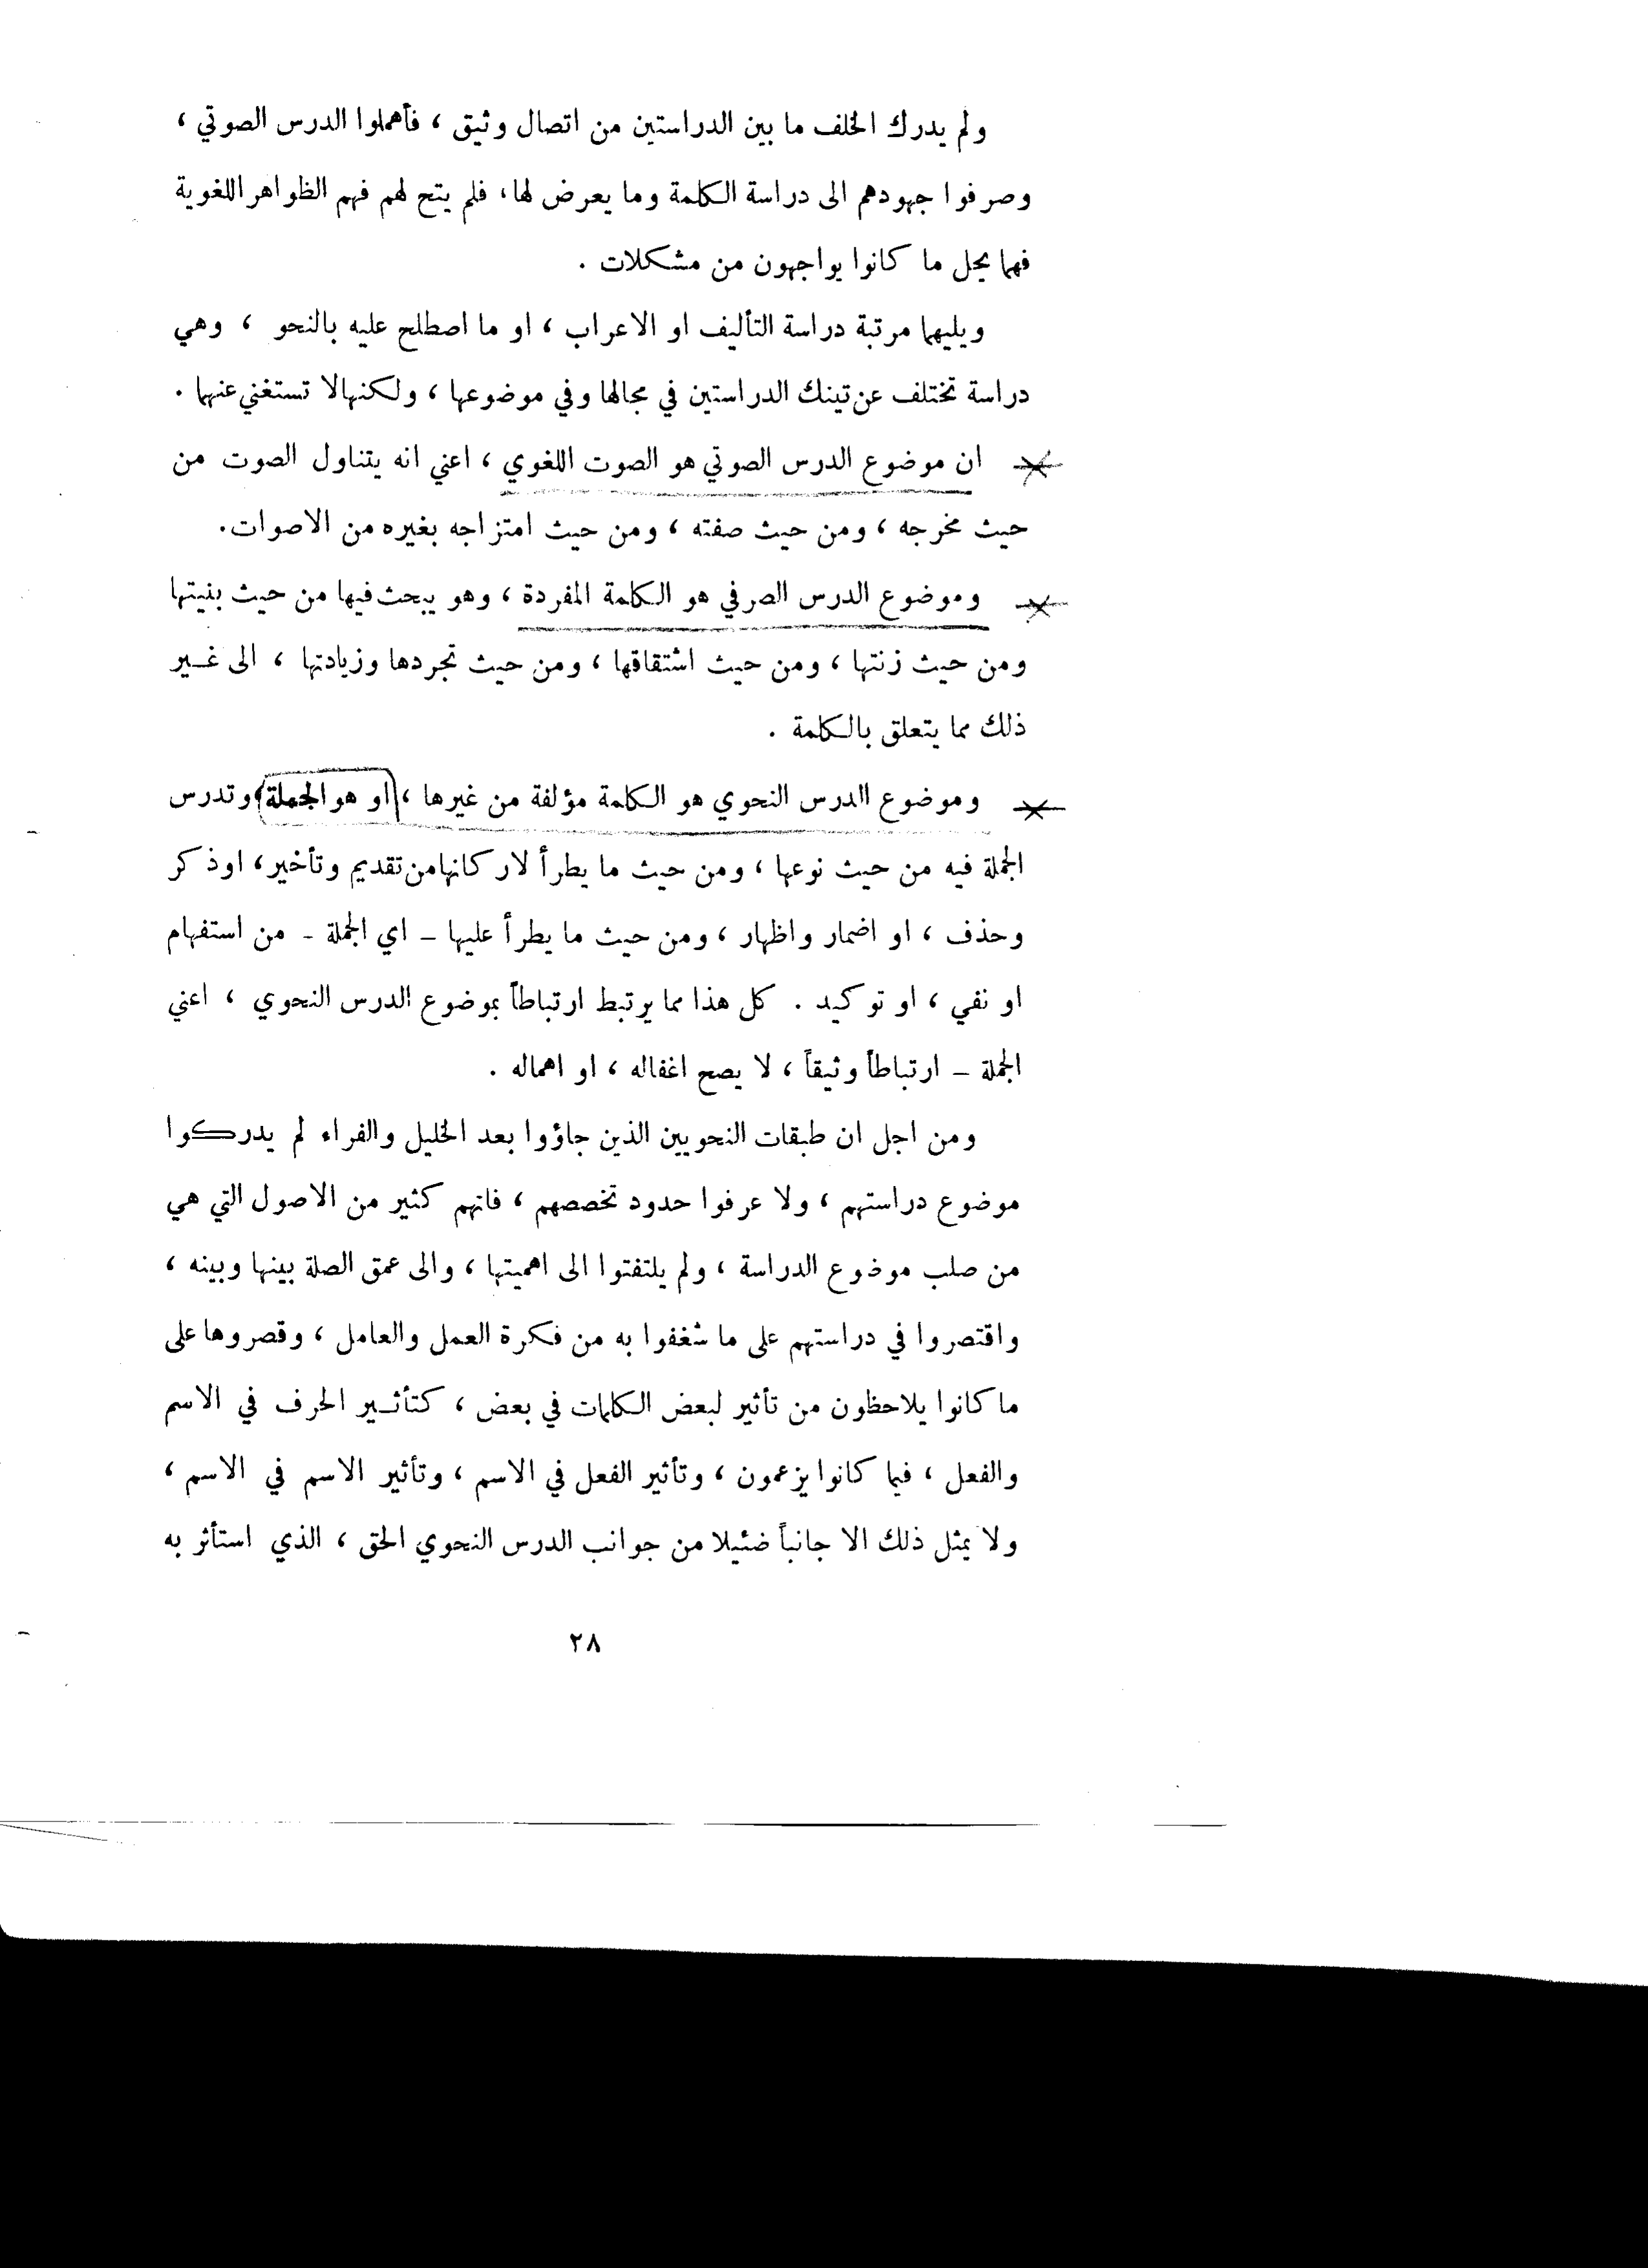 ولم يدرك الخلف ما بين الدراستين من اتصال وثيق ، فأهملوا الدرس الصوتي ،
وصرفوا جهودهم الى دراسة الكلمة وما يعرض لها ، فلم يتح لهم فهم الظواهر اللغوية
فهما يحل ما كانوا يواجهون من مشكلات .
ويليهما مرتبة دراسة التأليف او الاعراب ، او ما اصطلح عليه بالنحو ، وهي
دراسة تختلف عن تينك الدراستين في مجالها وفي موضوعها ، ولكنها لا تستغني عنهما .
ان موضوع الدرس الصوتي هو الصوت اللغوي ، اعني انه يتناول الصوت من
حيث مخرجه ، ومن حيث صفته ، ومن حيث امتزاجه بغيره من الاصوات .
وموضوع الدرس الصرفي هو الكلمة المفردة ، وهو يبحث فيها من حيث بنيتها
ومن حيث زنتها ، ومن حيث اشتقاقها ، ومن حيث تجردها وزيادتها ، الى غير
ذلك مما يتعلق بالكلمة .
وموضوع الدرس النحوي هو الكلمة مؤلفة من غيرها ، او هو الجملة ، وتدرس
الجملة فيه من حيث نوعها ، ومن حيث ما يطرأ لاركانها من تقديم وتأخير ، او ذكر
وحذف ، او اضمار واظهار ، ومن حيث ما يطرأ عليها - اي الجملة - من استفهام
او نفي ، او توكيد . كل هذا مما يرتبط ارتباطاً بموضوع الدرس النحوي ، اعني
الجملة - ارتباطاً وثيقاً ، لا يصح اغفاله ، او اهماله .
ومن اجل ان طبقات النحويين الذين جاؤوا بعد الخليل والفراء لم يدركوا
موضوع دراستهم ، ولا عرفوا حدود تخصصهم ، فاتهم كثير من الاصول التي هي
من صلب موضوع الدراسة ، ولم يلتفتوا الى اهميتها ، والى عمق الصلة بينها وبينه ،
واقتصروا في دراستهم على ما شغفوا به من فكرة العمل والعامل ، وقصروها على
ما كانوا يلاحظون من تأثير لبعض الكلمات في بعض ، كتأثير الحرف في الاسم
والفعل ، فيما كانوا يزعمون ، وتأثير الفعل في الاسم ، وتأثير الاسم في الاسم ،
ولا يمثل ذلك الا جانباً ضئيلا من جوانب الدرس النحوي الحق ، الذي استأثر به
٢٨